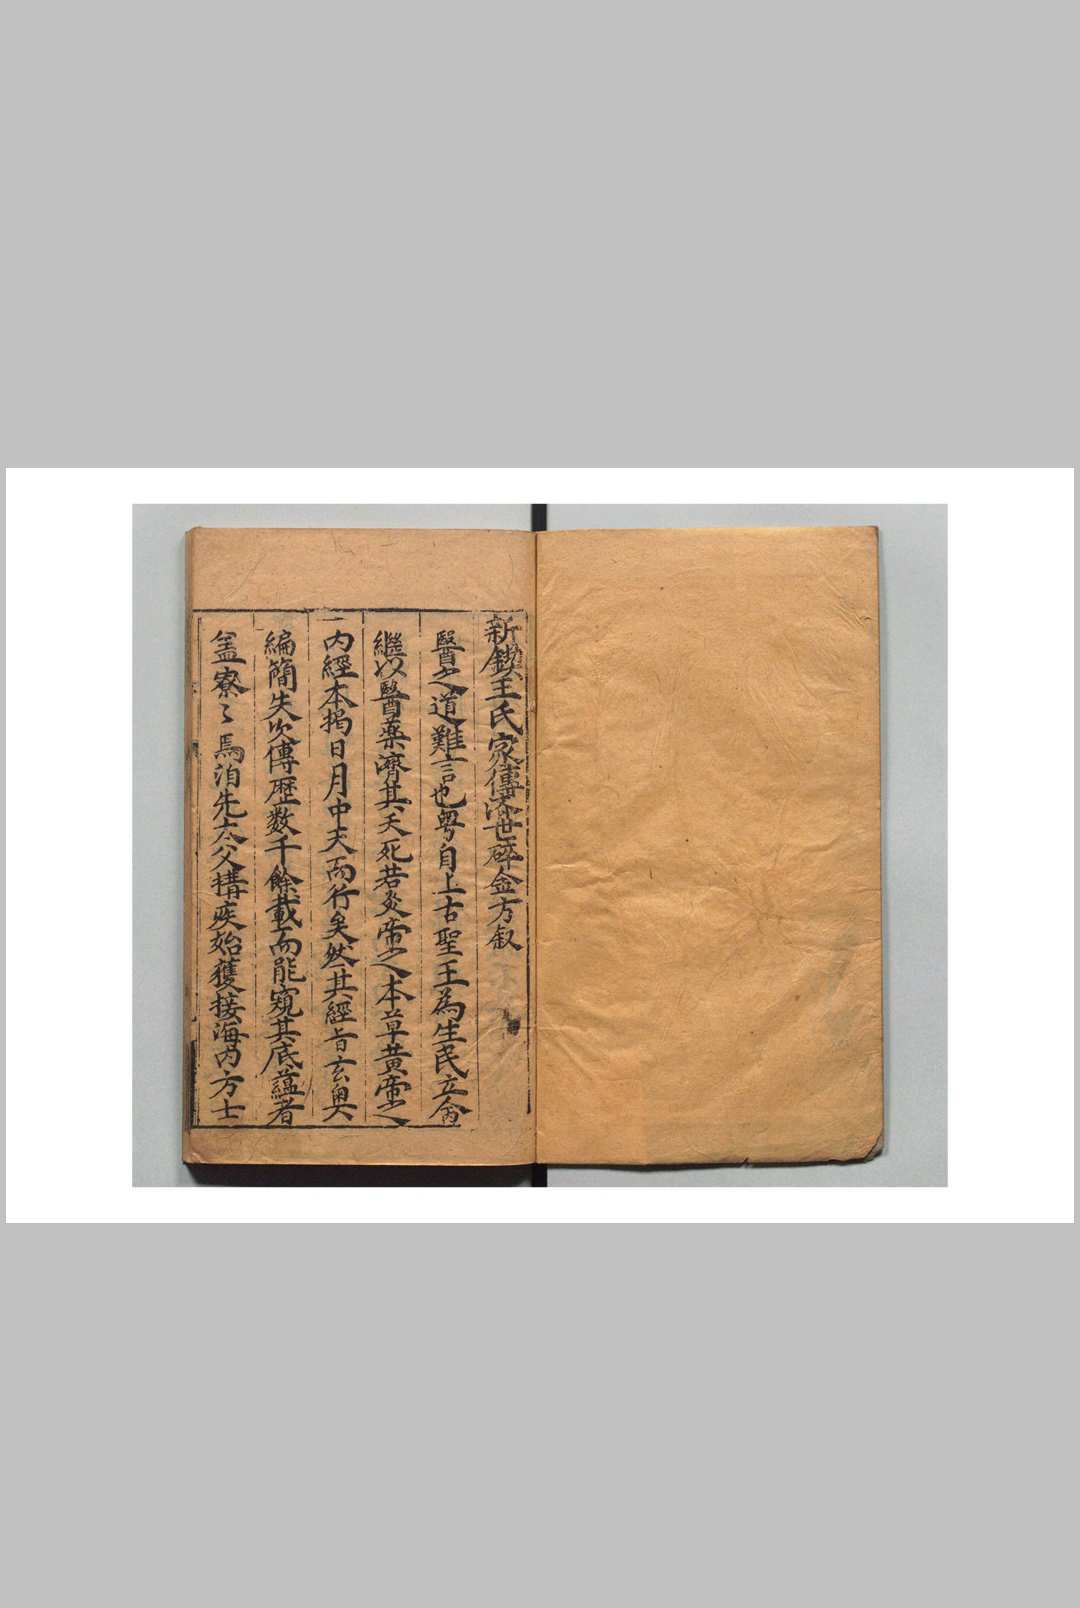 新鍥王氏家傳濟世碎金方叙
醫之道難言也粤自上古聖王為生民立命
繼以醫藥濟其夭死若炎帝之本草黄帝之
内經本揭日月中天而行矣然其經旨玄奥
編簡失次傳歷数千餘載而能窺其底蘊者
盖寮〻焉洎先大父搆疾始獲接海内方士